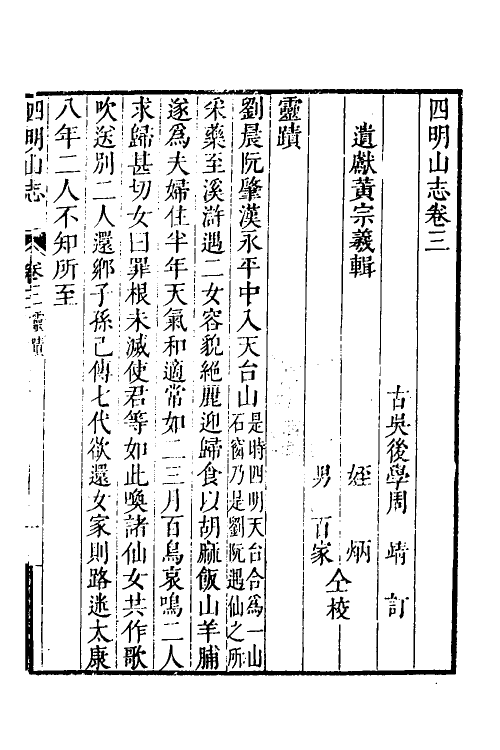 四明山志卷三
古吳後學周靖訂
遺獻黃宗羲輯
姪炳
男百家
仝校
靈蹟
劉晨阮肇漢永平中入天台山是時四明天台合爲一山石窗乃是劉阮遇仙之所
采藥至溪滸遇二女容貌絕麗迎歸食以胡麻飯山羊脯
遂爲夫婦住半年天氣和適常如二三月百鳥哀鳴二人
求歸甚切女曰罪根未滅使君等如此喚諸仙女共作歌
吹送別二人還鄉子孫已傳七代欲還女家則路迷太康
八年二人不知所至
四明山志
卷三靈蹟
一